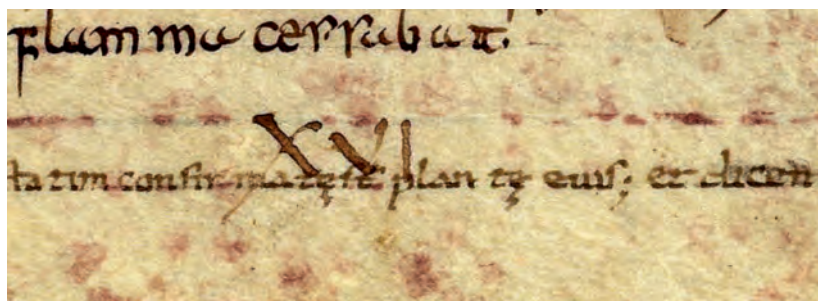 flamma cessabat.
XVI
tatim confirmatę st̄ plantę eius; et dicen